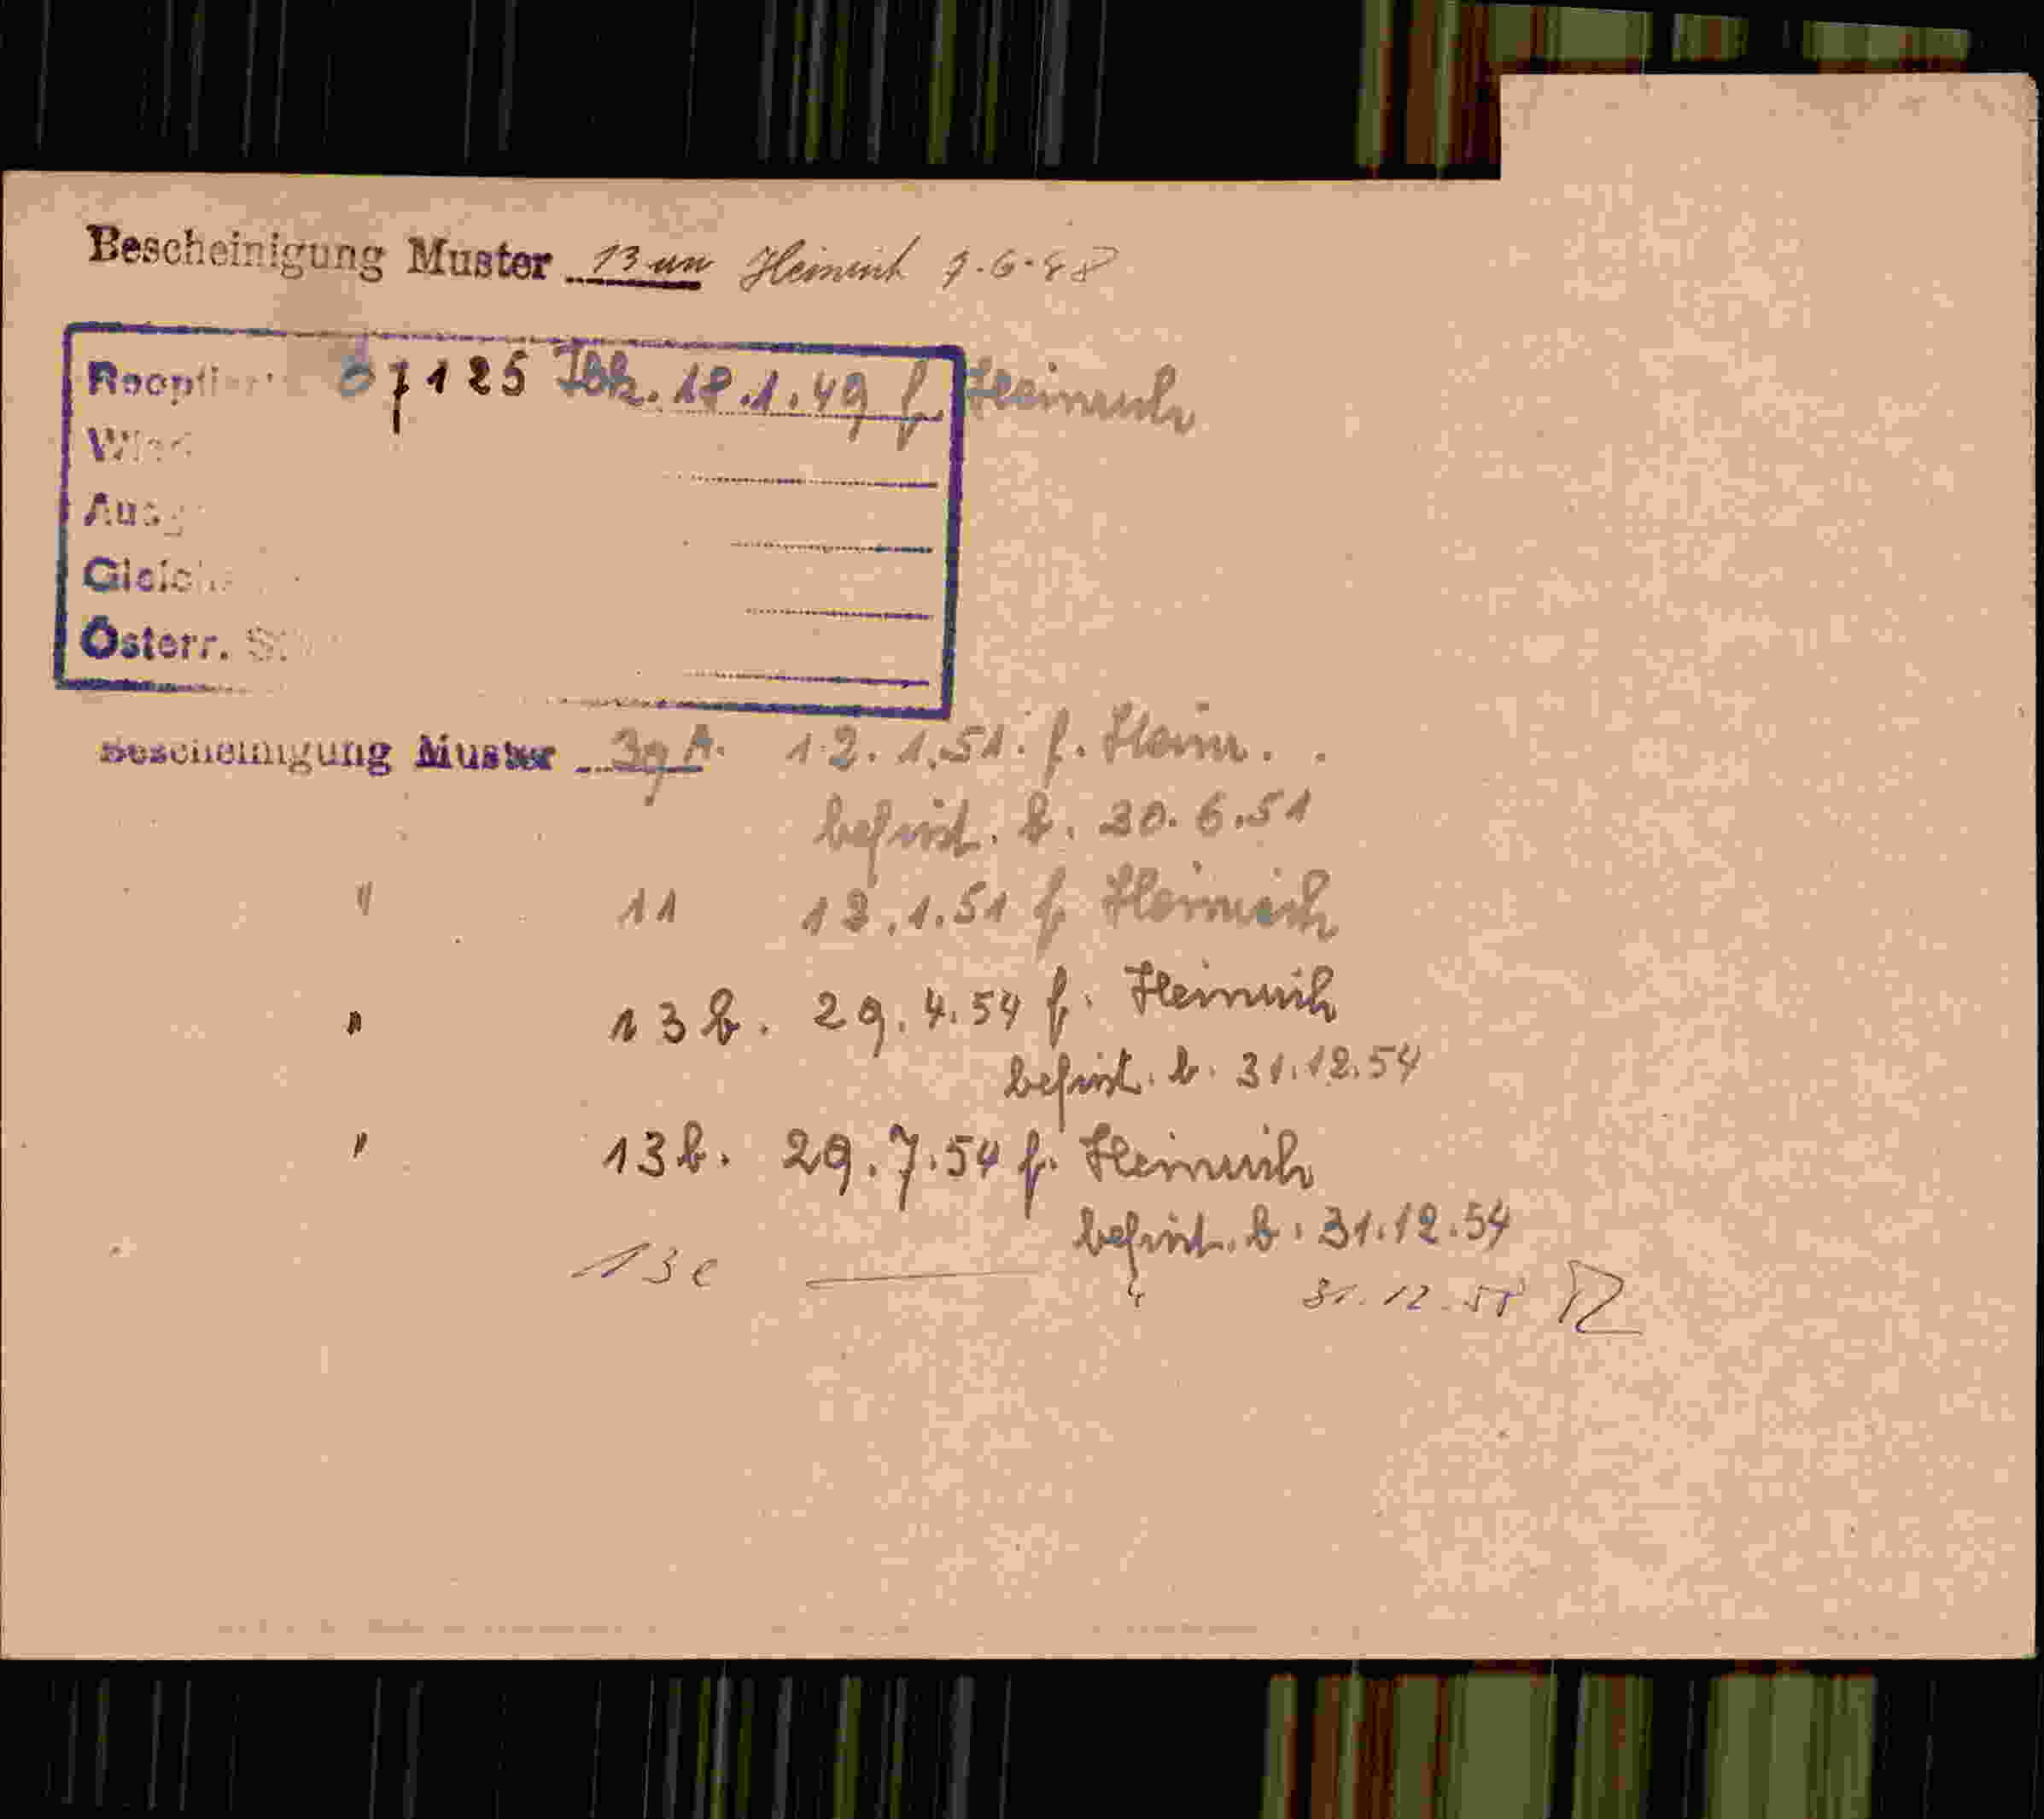 Bescheinigung Muster 13 un Heinrich 9.6.48
67125 Ibk. 18.1.49 f. Heinrich
Österr.
Bescheinigung Muster 39 A. 12.1.51. f. Heinr.
befrist. b. 30.6.51
" 11 12.1.51 f. Heinrich
" 13 b. 29.4.54 f. Heinrich
befrist. b. 31.12.54
" 13 b. 29.7.54 f. Heinrich
befrist. b. 31.12.54
13 c — " 31.12.55